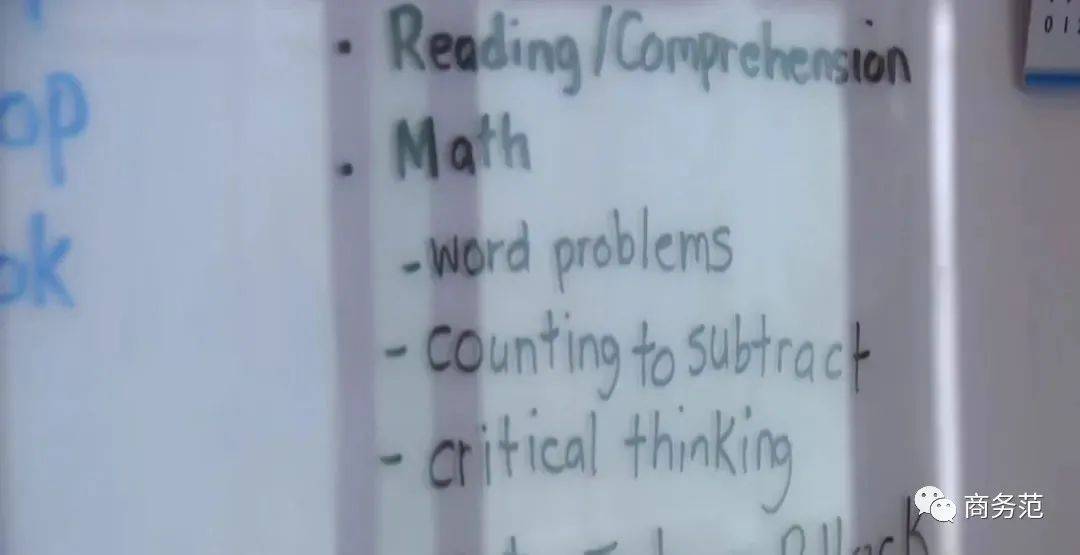 op
ok
· Reading/Comprehension
· Math
- word problems
- counting to subtract
- critical thinking
商务范